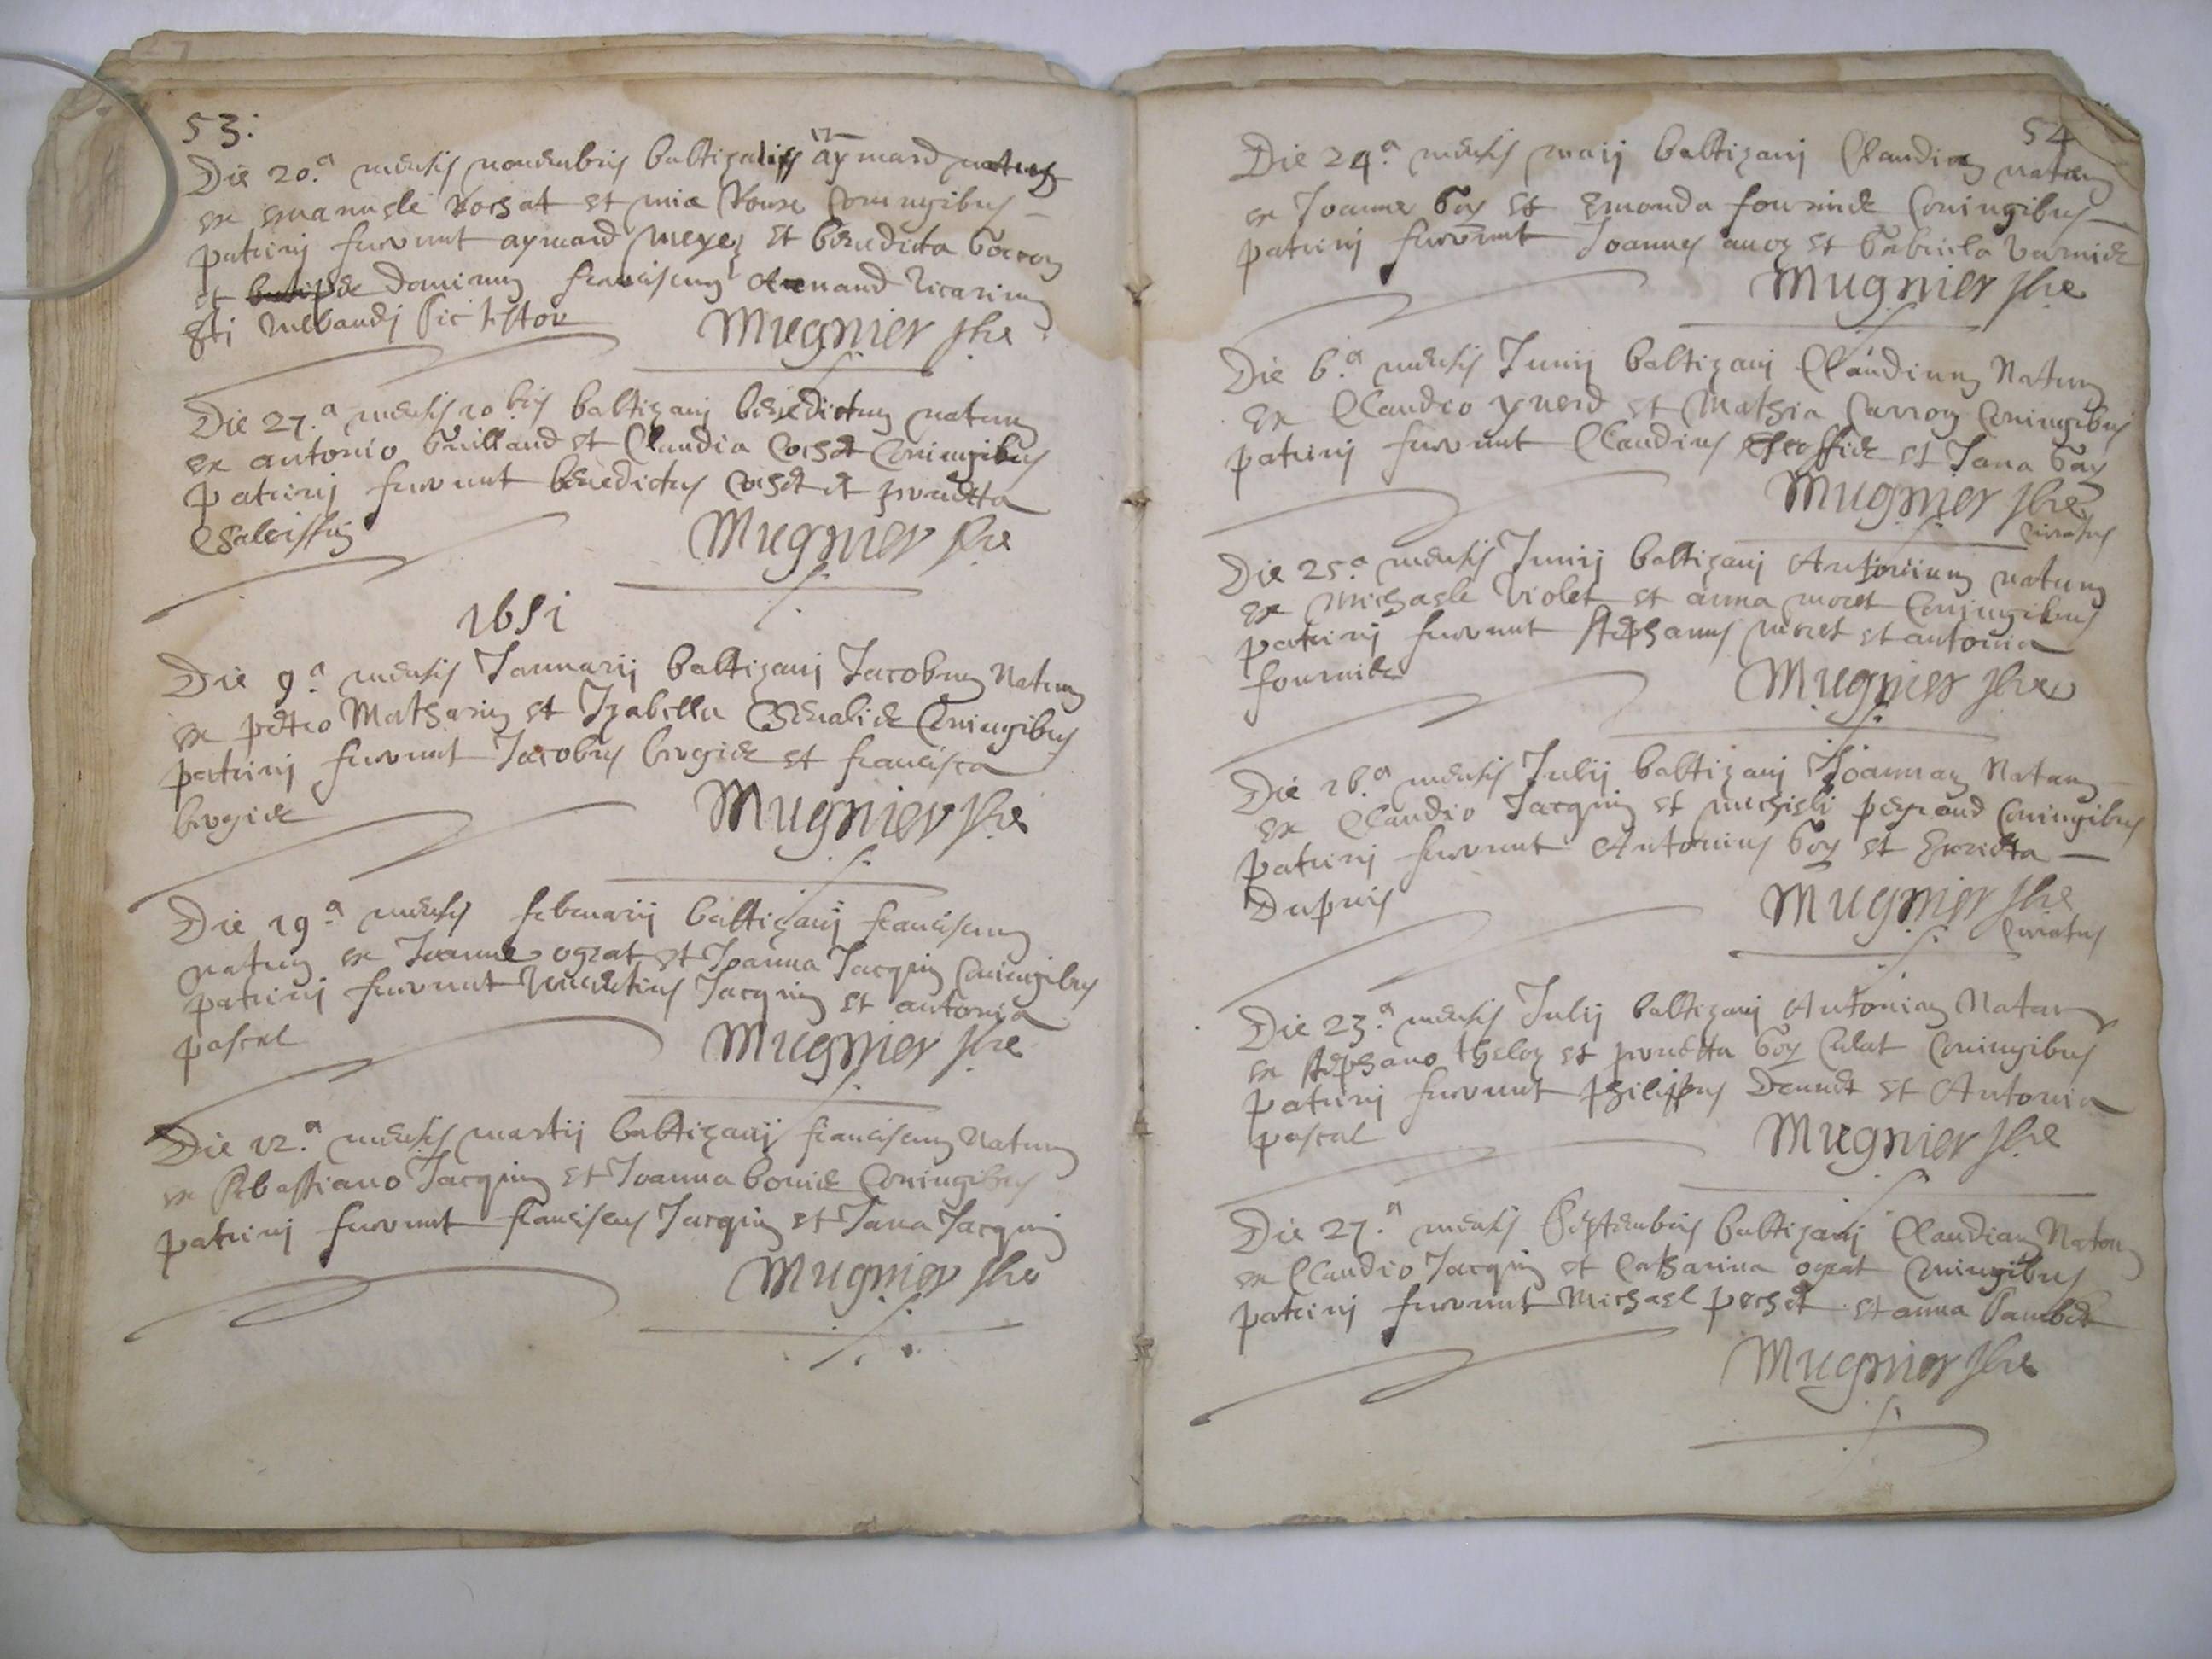 53.
Die 20.a mensis novembris baltizatus aymard natus
ex emanuele Rochat et mia Roux coniugibus
patrinj fuerunt aymard meyer et benedicta
et dominum franciscum Armand vicarium
sti Mebaudj sic testor Mugnier
Die 27.a mensis 10bris baltizavj benedictum natum
ex antonio Guilland et Claudia cochet coniugibus
patrinj fuerunt benedictus cochet et pernetta
Mugnier
1651
Die 9.a mensis Januarij baltizavj Jacobum Natum
ex petro Matherin et Izabella Chevalier Coniugibus
patrinj fuerunt Jacobus brogier et francisca
brogier Mugnier
Die 19.a mensis februarij baltizavj franciscum
natum ex Joanne ograt et Joanna Jacquin Coniugibus
patrinj fuerunt vincentius Jacquin et antonia
pascal Mugnier
Die 12.a mensis martij baltizavj franciscum Natum
ex Sebastiano Jacquin et Joanna bovier Coniugibus
patrinj fuerunt franciscus Jacquin et Jana Jacquin
Mugnier
54
Die 24.a mensis maij baltizavj Claudiam natam
ex Joanne Goy et Emonda fournier Coniugibus
patrinj fuerunt Joannes et Gabriela varnier
Mugnier
Die 6.a mensis Junij baltizavj Claudium Natum
ex Claudio ynerd et Mathia Carron Coniugibus
patrinj fuerunt Claudius et Jana Gay
Mugnier
curatus
Die 25.a mensis Junij baltizavj Antonium natum
ex michaele violet et anna moret Coniugibus
patrinj fuerunt stephanus moret et antonia
fournier Mugnier
Die 16.a mensis Julij baltizavj Joannam Natam
ex Claudio Jacquin et michiele peyraud Coniugibus
patrinj fuerunt Antonius Goy et Enrietta
Dupuis Mugnier
Curatus
Die 23.a mensis Julij baltizavj Antoniam Natam
ex stephano theloz et pernetta Goy Culat Coniugibus
patrinj fuerunt philippus Dennet et Antonia
pascal Mugnier
Die 27.a mensis Septembris baltizavj Claudiam Natam
ex Claudio Jacquin et Catharina ograt Coniugibus
patrinj fuerunt Michael pochet et anna Pambet
Mugnier